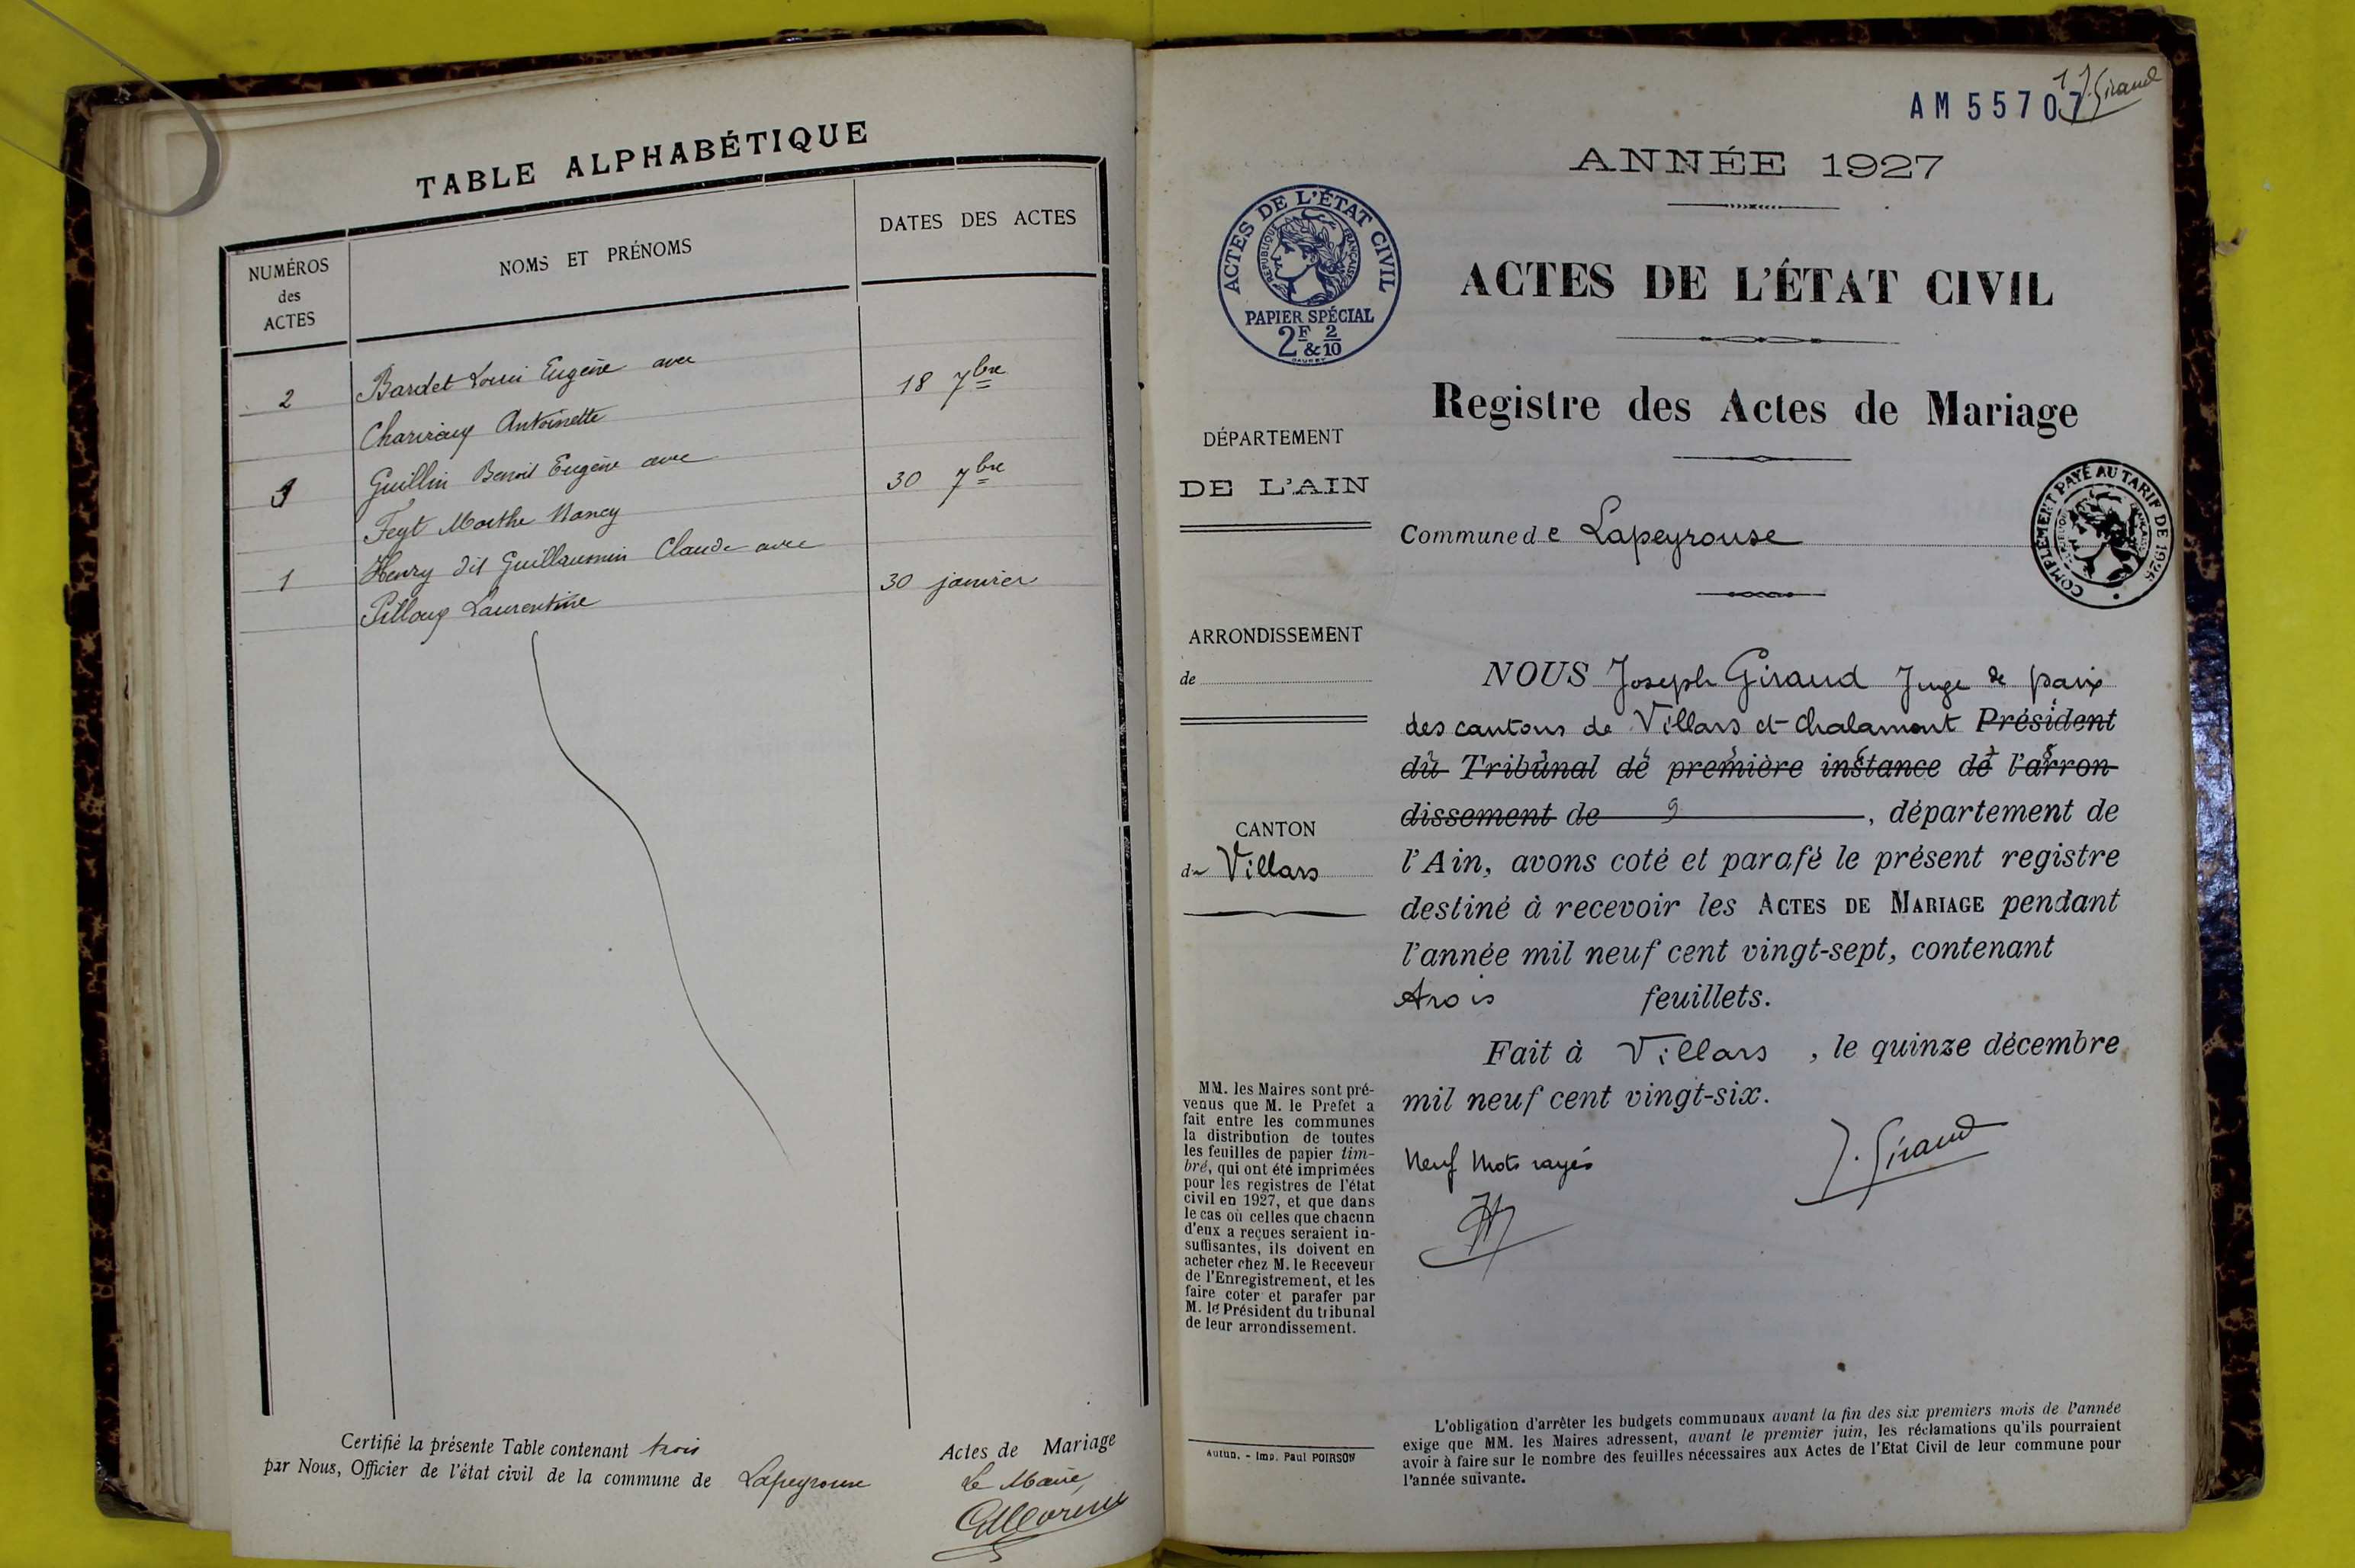 TABLE ALPHABÉTIQUE
NUMÉROS
des
ACTES
NOMS ET PRÉNOMS
DATES DES ACTES
2 Bardet Louis Eugène avec 18 7bre
Antoinette
3 Guillin Benoit Eugène avec 30 7bre
Feyt Marthe Nancy
1 Henry dit Guillaumin Claude avec 30 janvier
Pilloux Laurentine
Certifié la présente Table contenant trois Actes de Mariage
par Nous, Officier de l'état civil de la commune de Lapeyrouse Le Maire,
1 J. Giraud
AM 55707
ANNÉE 1927
ACTES DE L'ÉTAT CIVIL
RÉPUBLIQUE FRANÇAISE
PAPIER SPÉCIAL
2F & 2/10
ACTES DE L'ÉTAT CIVIL
Registre des Actes de Mariage
DÉPARTEMENT
DE L'AIN
Commune de Lapeyrouse
COMPLÉMENT PAYÉ AU TARIF DE 1926
ARRONDISSEMENT
de
CANTON
de Villars
NOUS Joseph Giraud Juge de paix
des cantons de Villars et Chalamont Président
du Tribunal de première instance de l'arron-
dissement de 9, département de
l'Ain, avons coté et parafé le présent registre
destiné à recevoir les ACTES DE MARIAGE pendant
l'année mil neuf cent vingt-sept, contenant
trois feuillets.
Fait à Villars, le quinze décembre
mil neuf cent vingt-six.
Neuf mots rayés
J. Giraud
MM. les Maires sont pré-
venus que M. le Préfet a
fait entre les communes
la distribution de toutes
les feuilles de papier tim-
bré, qui ont été imprimées
pour les registres de l'état
civil en 1927, et que dans
le cas où celles que chacun
d'eux a reçues seraient in-
suffisantes, ils doivent en
acheter chez M. le Receveur
de l'Enregistrement, et les
faire coter et parafer par
M. le Président du tribunal
de leur arrondissement.
Autun. - Imp. Paul POIRSON
L'obligation d'arrêter les budgets communaux avant la fin des six premiers mois de l'année
exige que MM. les Maires adressent, avant le premier juin, les réclamations qu'ils pourraient
avoir à faire sur le nombre des feuilles nécessaires aux Actes de l'Etat Civil de leur commune pour
l'année suivante.